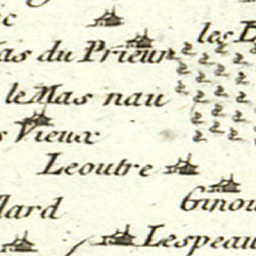 c
les D
as du Prieur
le Mas nau
s Vieux
Leoutre
llard
Ginou
Lespeau